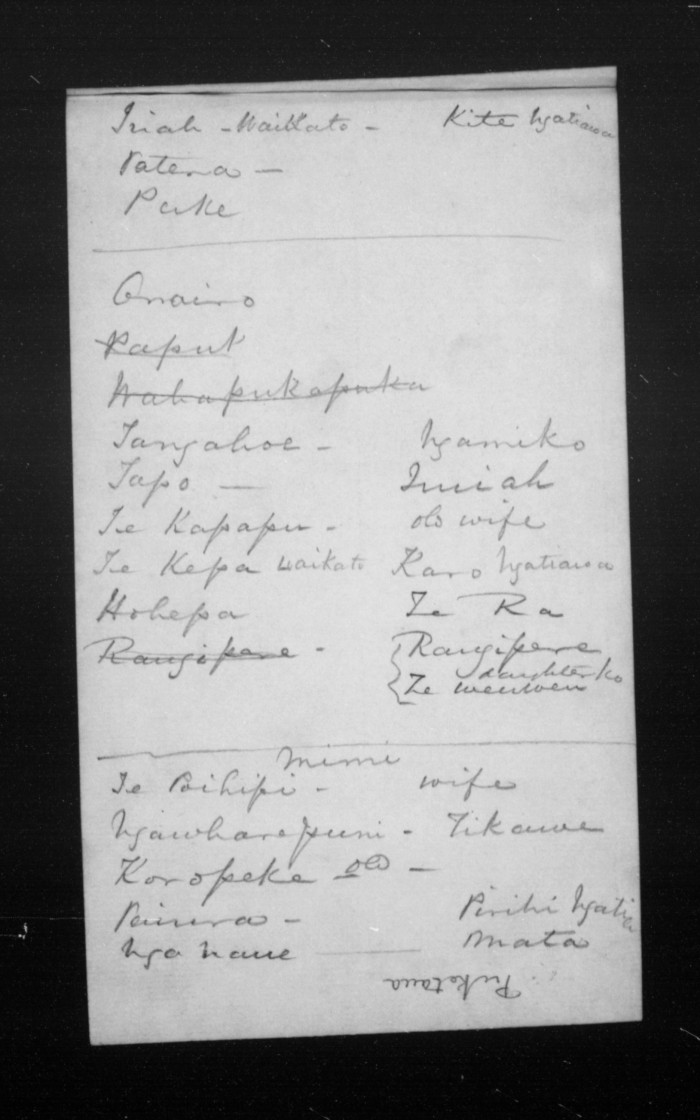 Iriah - Waikato - Kite Ngatiawa
Patena -
Puke
Onairo
Paput
Wahapukapuka
Tangahoe - Ngamiko
Tapo - Iniah
Te Kapapu - old wife
Te Kepa Waikato Karo Ngatiawa
Hohepa Te Ra
Rangipere - Rangipere
daughter ko
Te weuweu
Mimi
Te Bihipi - wife
Ngawharepuni - Tikawe
Koropeke old -
Painira - Pirihi Ngatia
Nga naue - Mata
Puketaua